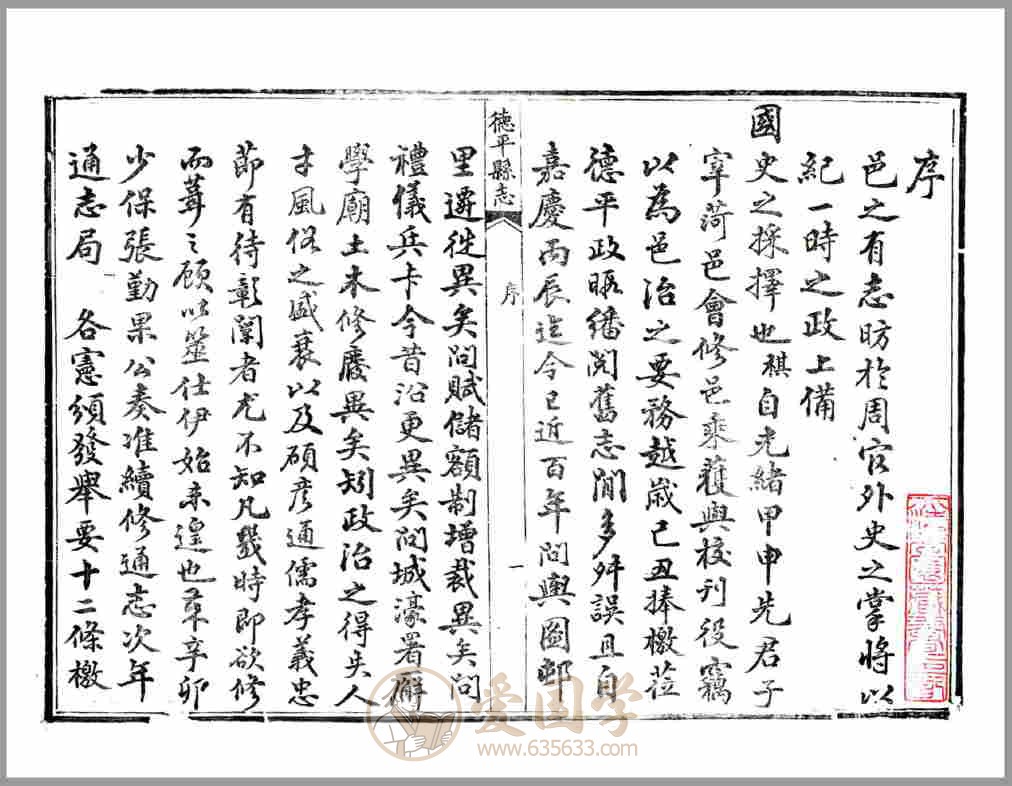 序
邑之有志昉於周官外史之掌將以
紀一時之政上備
國史之採擇也祺自光緒甲申先君子
宰菏邑會修邑乘獲與校刊役竊
以為邑治之要務越歲己丑捧檄莅
德平政暇繙閱舊志間多舛誤且自
嘉慶丙辰迄今已近百年問輿圖郵
德平縣志
序
一
里遷徙異矣問賦儲額制增裁異矣問
禮儀兵卡今昔沿更異矣問城濠署廨
學廟土木修廢異矣矧政治之得失人
才風俗之盛衰以及碩彥通儒孝義忠
節有待彰闡者尤不知凡幾時即欲修
而葺之顧以筮仕伊始未遑也辛卯
少保張勤果公奏准續修通志次年
通志局 各憲頒發舉要十二條檄
爱国学
www.635633.com